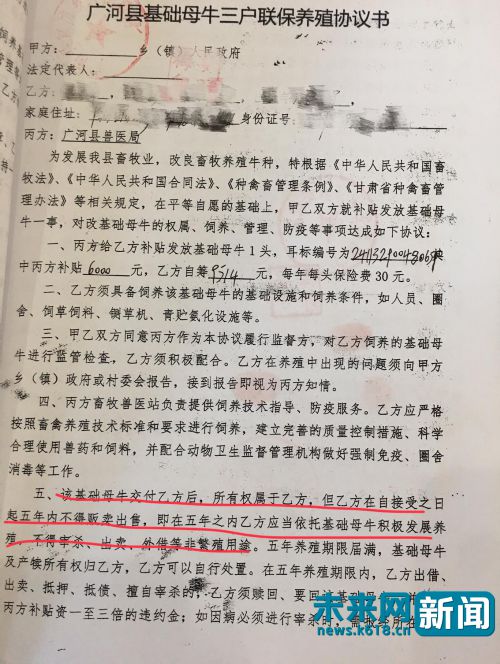 广河县基础母牛三户联保养殖协议书
甲方：乡（镇）人民政府
法定代表人：
乙方：
家庭住址：身份证号：
丙方：广河县兽医局
为发展我县畜牧业，改良畜牧养殖牛种，特根据《中华人民共和国畜
牧法》、《中华人民共和国合同法》、《种禽畜管理条例》、《甘肃省种禽畜管
理办法》等相关规定，在平等自愿的基础上，甲乙双方就补贴发放基础母
牛一事，对改基础母牛的权属、饲养、管理、防疫等事项达成如下协议：
一、丙方给乙方补贴发放基础母牛1头，耳标编号为
中丙方补贴 6000 元，乙方自筹元，每年每头保险费30元。
二、乙方须具备饲养该基础母牛的基础设施和饲养条件，如人员、圈
舍、饲草饲料、铡草机、青贮氨化设施等。
三、甲乙双方同意丙方作为本协议履行监督方，对乙方饲养的基础母
牛进行监管检查，乙方须积极配合。乙方在养殖中出现的问题须向甲方
乡（镇）政府或村委会报告，接到报告即视为丙方知情。
四、丙方畜牧兽医站负责提供饲养技术指导、防疫服务。乙方应严格
按照畜禽养殖技术标准和要求进行饲养，建立完善的质量控制措施、科学
合理使用兽药和饲料，并配合动物卫生监督管理机构做好强制免疫、圈舍
消毒等工作。
五、该基础母牛交付乙方后，所有权属于乙方，但乙方在自接受之日
起五年内不得贩卖出售，即在五年之内乙方应当依托基础母牛积极发展养
殖，不得宰杀、出卖、外借等非繁殖用途。五年养殖期限届满，基础母牛
及产犊所有权归乙方，乙方可以自行处置。在五年养殖期限内，乙方出借、
出卖、抵押、抵债、擅自宰杀的，乙方须赎回、要回基础母
丙方补贴资一至三倍的违约金；如因病必须进行宰杀时，需报经所在
未来网新闻
news.k618.cn